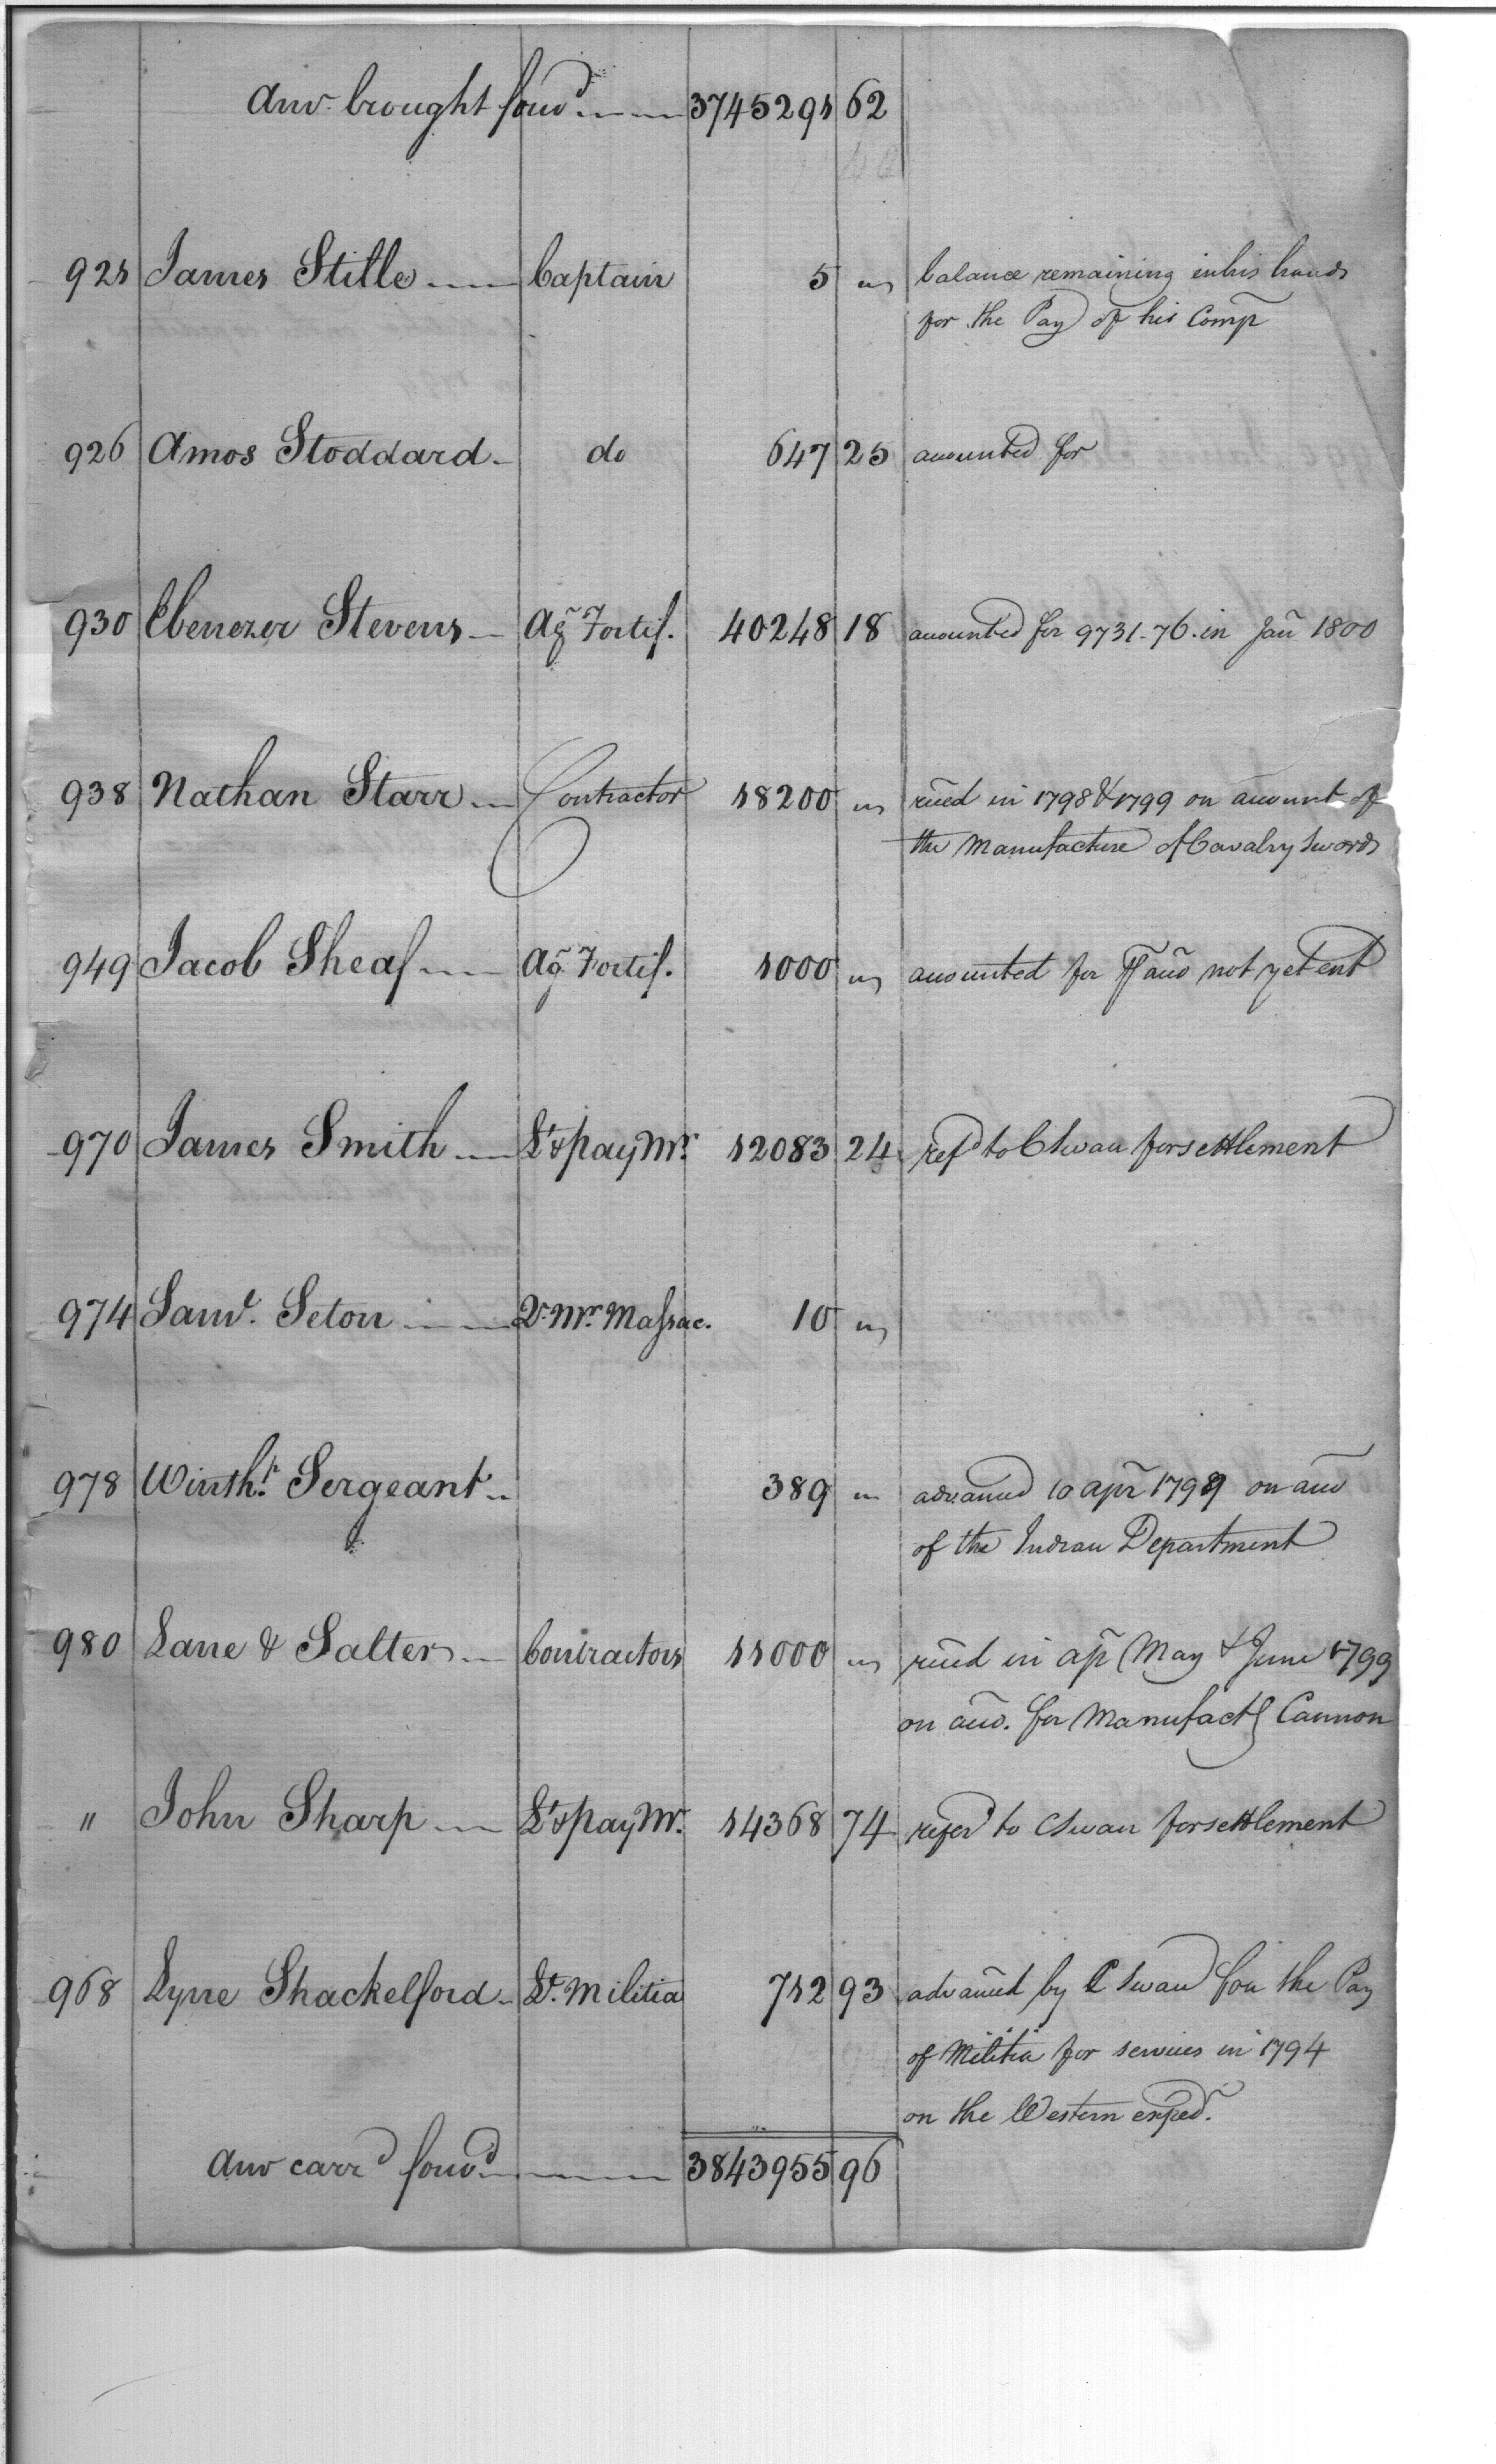 Amo. brought forwd. 3745291 62
921 James Stille Captain 5 " balance remaining in his hands
for the Pay of his Comp
926 Amos Stoddard do 647 25 accounted for
930 Ebenezer Stevens Ag Fortif. 40248 18 accounted for 9731-76. in Jan 1800
938 Nathan Starr Contractor 18200 " recd in 1798 & 1799 on account of
the Manufacture of Cavalry Swords
949 Jacob Sheaf Ag Fortif. 1000 " accounted for P acco not yet ent
970 James Smith Lt & Pay Mr. 12083 24 refd to C Swan for settlement
974 Saml. Seton Q. Mr. Massac. 10 "
978 Winthp. Sergeant 389 " advanced 10 apr 1799 on acco
of the Indian Department
980 Lane & Salter Contractors 11000 " recd in ap May & June 1799
on acco. for Manufactg Cannon
" John Sharp Lt & Pay Mr. 14368 74 referd to C Swan for settlement
968 Lyne Shackelford Lt. Militia 712 93 advanced by C Swan for the Pay
of Militia for services in 1794
on the Western exped.
Amo carrd forwd 3843955 96